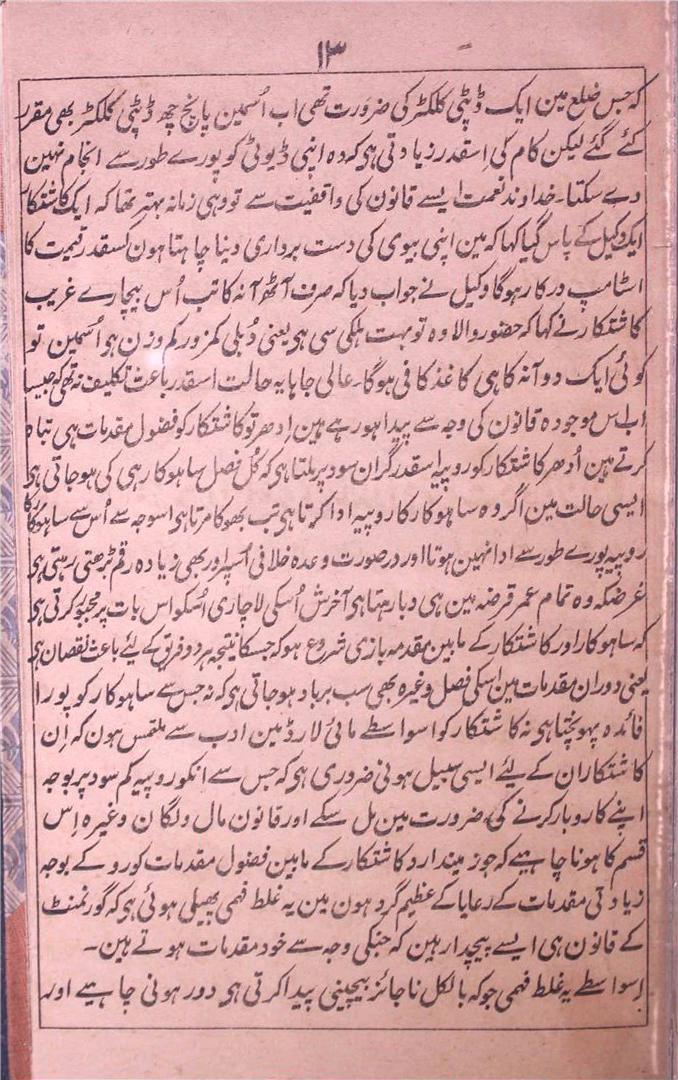 ۱۳
کہ جس ضلع مین ایک ڈپٹی کلکٹر کی ضرورت تھی اب اُسمین پانچ چھ ڈپٹی کلکٹر بھی مقرر
کئے گئے لیکن کام کی اِسقدر زیادتی ہی کہ وہ اپنی ڈیوٹی کو پورے طور سے انجام نہین
دے سکتا۔ خداوند نعمت ایسے قانون کی واقفیت سے تو وہی زمانہ بہتر تھا کہ ایک کاشتکار
ایک وکیل کے پاس گیا کہا کہ مین اپنی بیوی کی دست برداری دینا چاہتا ہون کسقدر قیمت کا
اسٹامپ درکار ہوگا وکیل نے جواب دیا کہ صرف آٹھ آنہ کا تب اُس بیچارے غریب
کاشتکار نے کہا کہ حضور والا وہ تو بہت ہلکی سی ہی یعنی دُبلی کمزور کم وزن ہی اُسمین تو
کوئی ایک دو آنہ کا ہی کاغذ کافی ہوگا۔ عالی جاہا یہ حالت اسقدر باعث تکلیف نہ تھی کہ جیسا
اب اس موجودہ قانون کی وجہ سے پیدا ہو رہے ہین اِدھر تو کاشتکار کو فضول مقدمات ہی تباہ
کرتے ہین اُدھر کاشتکار کو روپیہ اسقدر گران سود پر ملتا ہی کہ کُل فصل ساہوکار ہی کی ہو جاتی ہی
ایسی حالت مین اگر وہ ساہوکار کا روپیہ ادا کرتا ہی تب بھوکا مرتا ہی اسوجہ سے اُس سے ساہوکار کا
روپیہ پورے طور سے ادا نہین ہوتا اور درصورت وعدہ خلافی اُسپر اور بھی زیادہ رقم بڑھتی رہتی ہی
غرضکہ وہ تمام عمر قرضہ مین ہی دبا رہتا ہی آخرش اُسکی لاچاری اُسکو اس بات پر مجبور کرتی ہی
کہ ساہوکار اور کاشتکار کے مابین مقدمہ بازی شروع ہو کہ جسکا نتیجہ ہر دو فریق کے لیئے باعث نقصان ہی
یعنی دوران مقدمات مین اسکی فصل وغیرہ بھی سب برباد ہو جاتی ہی کہ نہ جس سے ساہوکار کو پورا
فائدہ پہونچتا ہی نہ کاشتکار کو اسواسطے مائی لارڈ مین ادب سے ملتمس ہون کہ اِن
کاشتکاران کے لیئے ایسی سبیل ہونی ضروری ہی کہ جس سے انکو روپیہ کم سود پر بوجہ
اپنے کاروبار کرنے کی ضرورت مین مل سکے اور قانون مال و لگان وغیرہ اِس
قسم کا ہونا چاہیے کہ جو زمیندار و کاشتکار کے مابین فضول مقدمات کو روکے بوجہ
زیادتی مقدمات کے رعایا کے عظیم گروہون مین یہ غلط فہمی پھیلی ہوئی ہی کہ گورنمنٹ
کے قانون ہی ایسے پیچدار ہین کہ جنکی وجہ سے خود مقدمات ہوتے ہین۔
اِسواسطے یہ غلط فہمی جو کہ بالکل ناجائز بیچینی پیدا کرتی ہی دور ہونی چاہیے اور